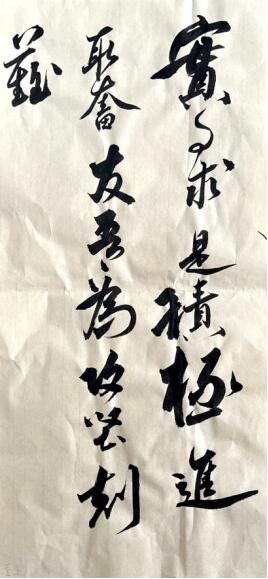 實事求是積極進
取奮友善為攻堅刻
難